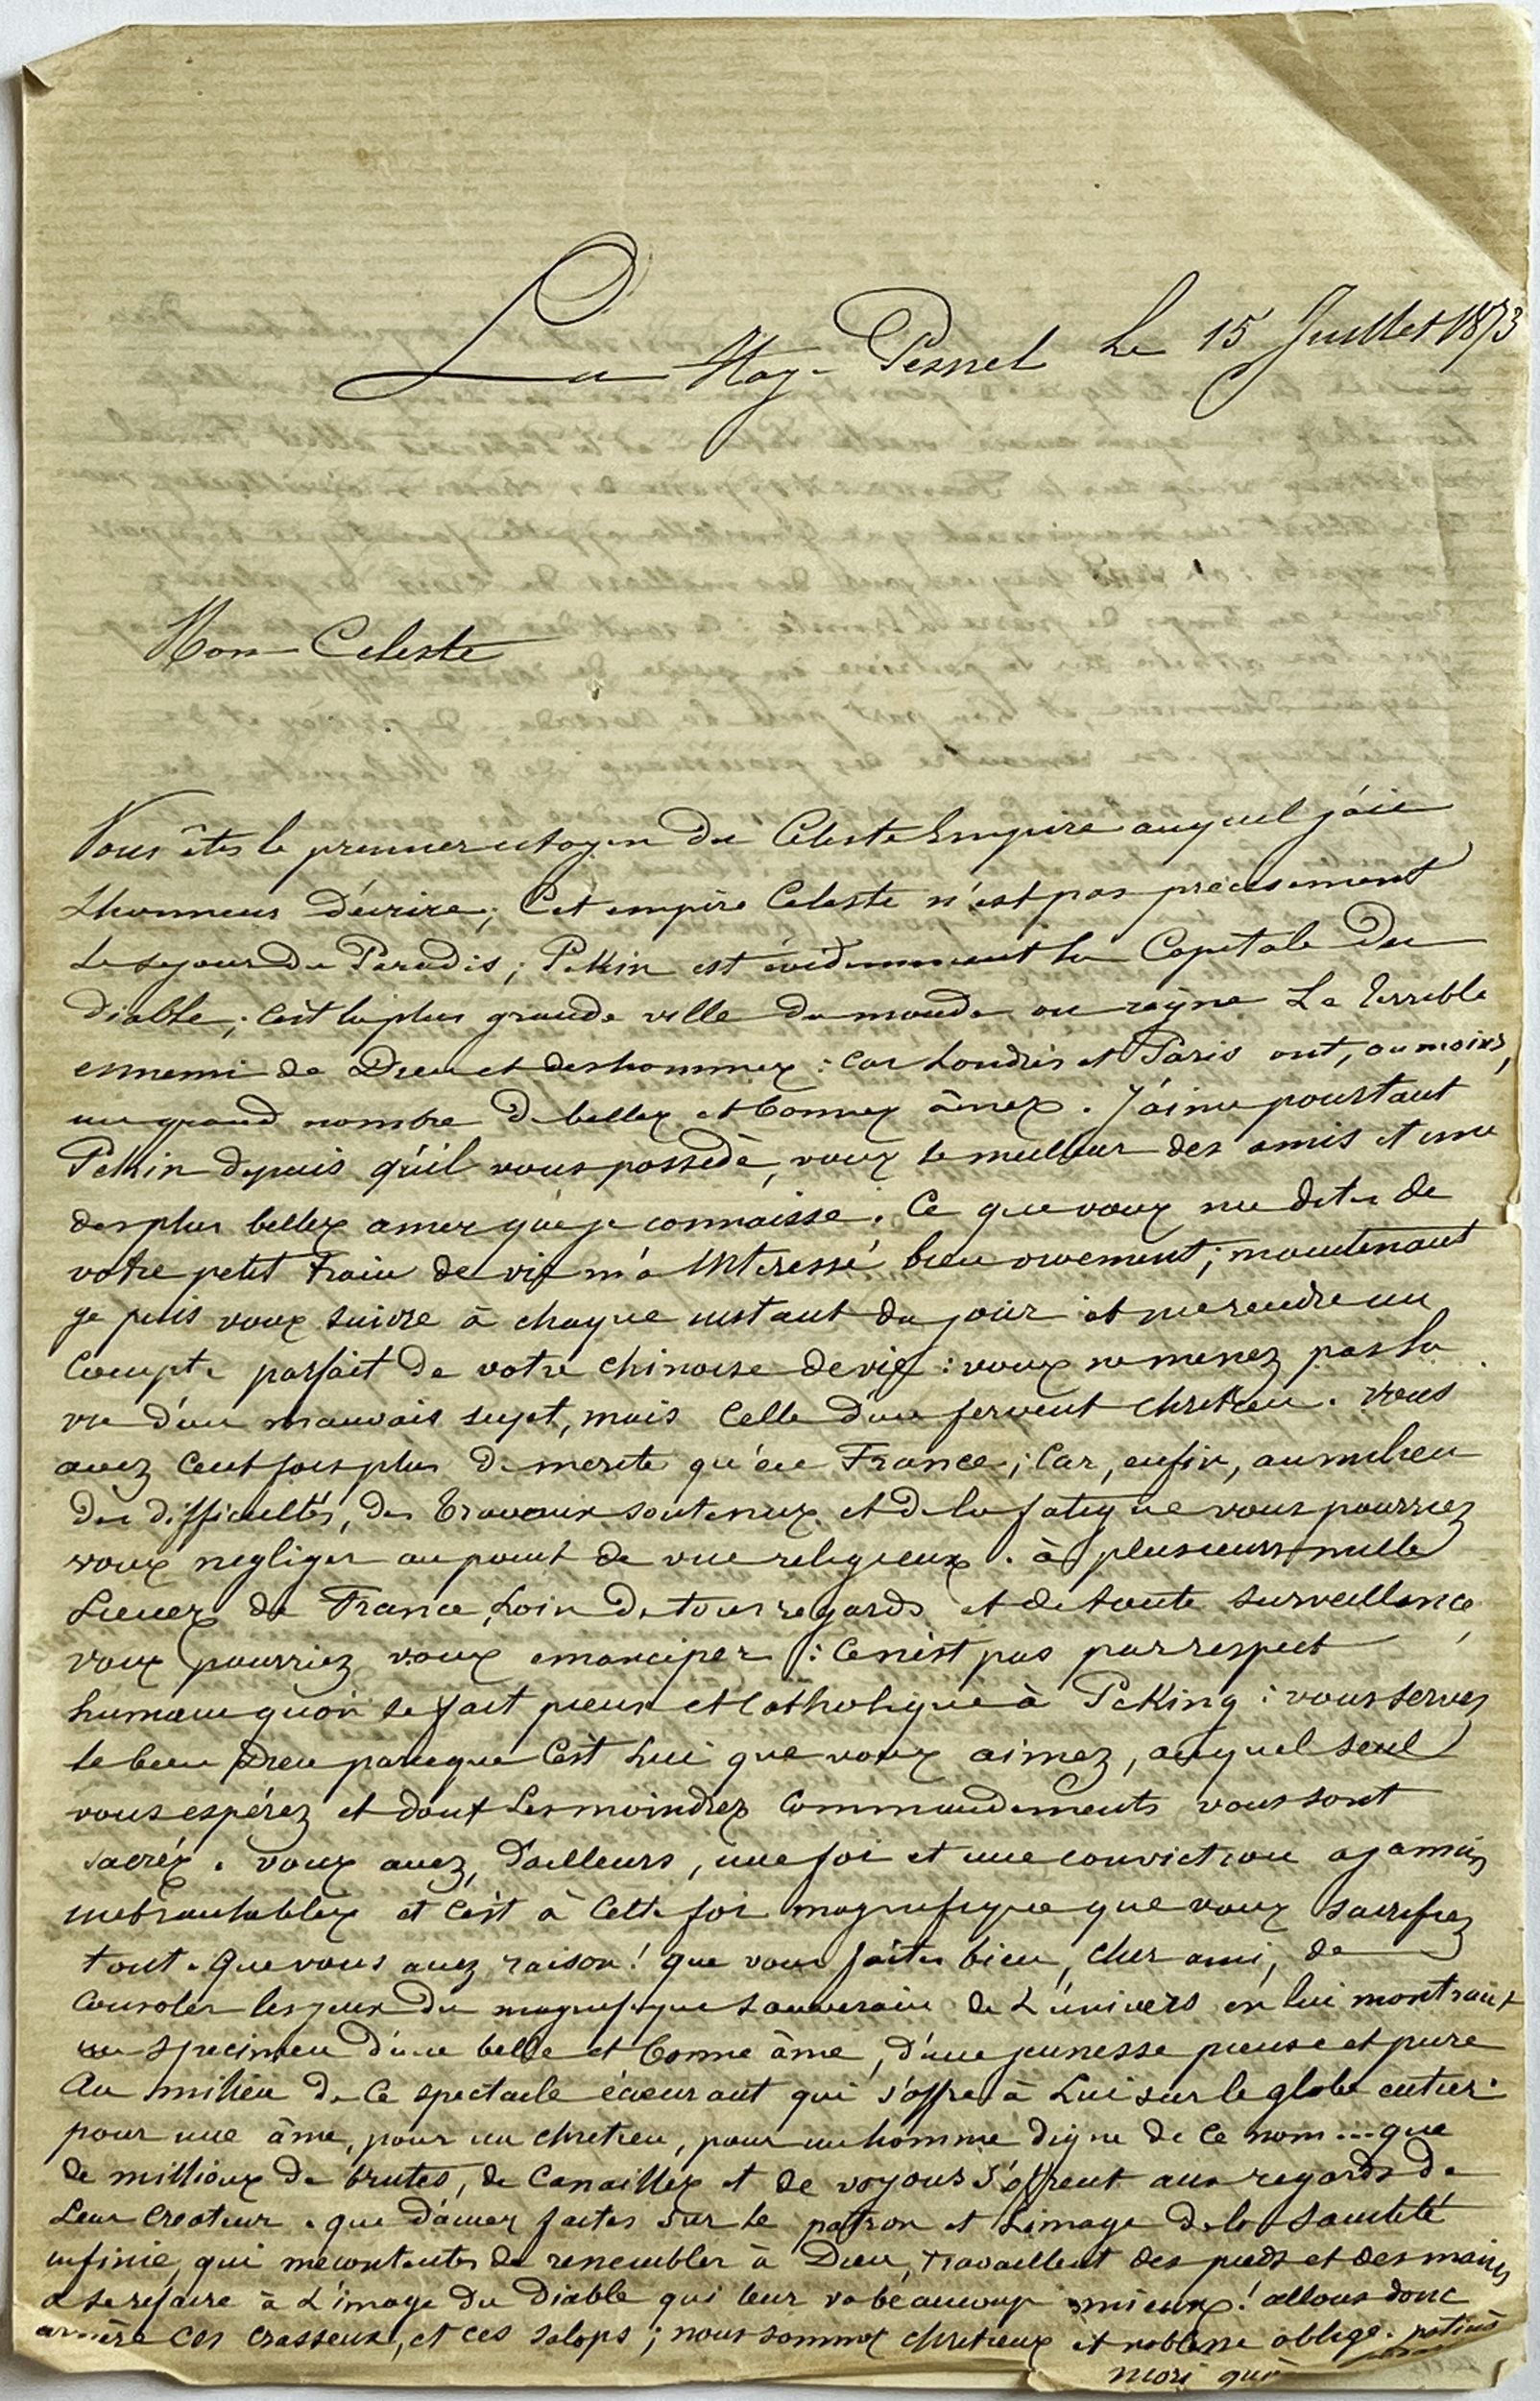 La Hay-Pesnel le 15 Juillet 1873
Mon Celeste
Vous êtes le premier citoyen du Celeste Empire auquel j'aie
L'honneur D'écrire; Cet empire Celeste n'est pas precisement
Le sejour du Paradis; Pekin est évidemment la Capitale du
Diable; C'est la plus grande ville du monde ou regne Le terrible
ennemi de Dieu et des hommex: Car Londres et Paris ont, au moins,
un grand nombre De bellex et bonnex âmex. J'aime pourtant
Pekin depuis qu'il vous possede, voux le meilleur des amis et une
des plus bellex amex que je connaisse. Ce que voux me dites de
votre petit train de vie m'a interessé bien vivement; maintenant
je puis voux suivre à chaque instant du jour et me rendre un
Compte parfait de votre chinoise de vie: voux ne menez pas la
vie d'un mauvais sujet, mais Celle d'un fervent chretien. Vous
avez Cent fois plus De merite qu'en France; Car, enfin, au milieu
des difficultés, des travaux soutenux et de la fatigue vous pourriez
voux negliger au point de vue religieux. à plusieurs mille
Lieuex de France, Loin De tous regards et de toute surveillance,
voux pourriez voux emanciper: Ce n'est pas par respect
humain qu'on se fait pieux et Catholique à PeKing: vous servez
le bon Dieu parceque C'est Lui que voux aimez, auquel seul
vous espérez et dont Les moindrex Commandements vous sont
sacréx. voux avez, D'ailleurs, une foi et une conviction a jamais
inebranlablex et C'est à Cette foi magnifique que voux sacrifiez
tout. Que vous avez raison! que vous faites bien, cher ami, de
Consoler les yeux du magnifique souverain de L'univers en lui montrant
un specimen d'une belle et bonne âme, d'une jeunesse pieuse et pure
Au milieu De Ce spectacle écoeurant qui s'offre à Lui sur le globe entier:
pour une âme, pour un chretien, pour un homme digne de Ce nom... que
de millionx de brutes, de Canaillex et de voyous s'offrent aux regards de
Leur Createur. que d'amex faites sur le patron et L'image de la sainteté
infinie, qui mecontentes de ressembler à Dieu, travaillent des pieds et des mains
a se refaire à L'image du Diable qui leur va beaucoup mieux! allons donc
arrière Ces Crasseux, et ces salops; nous sommex chretienx et noblesse oblige. potius
mori qu'